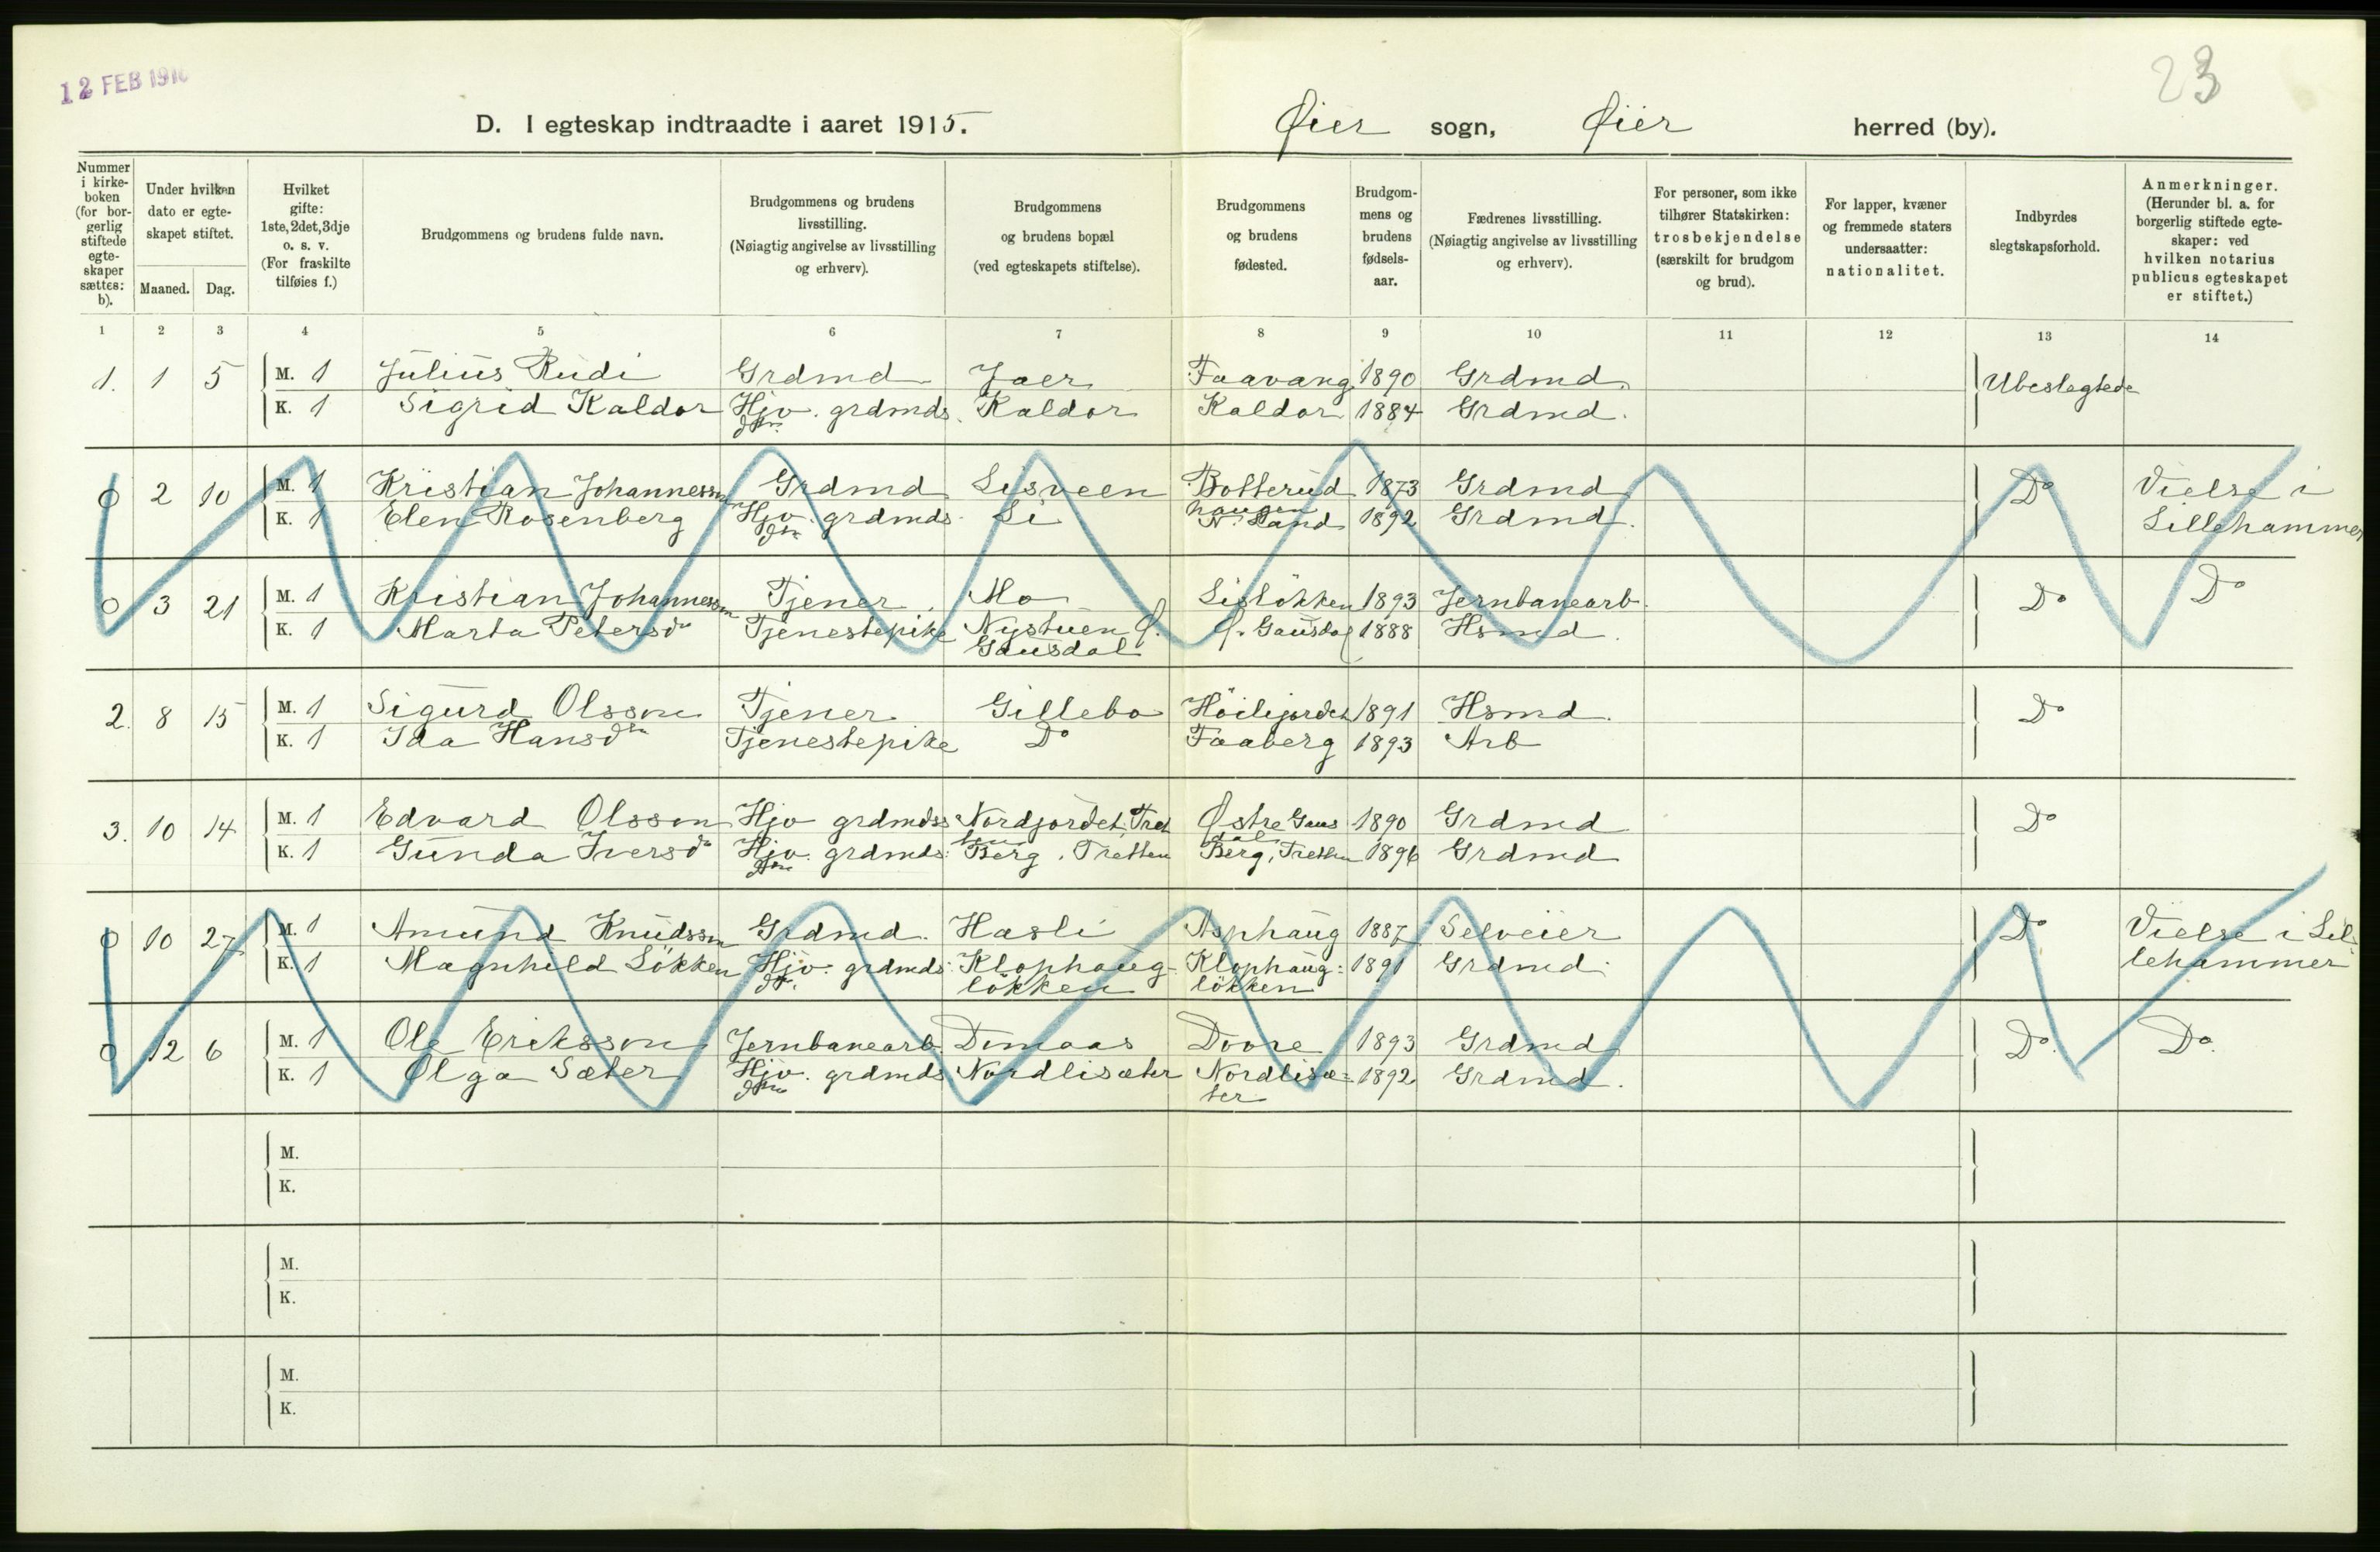 12 FEB 191
23
D. I egteskap indtraadte i aaret 1915. Øier sogn, Øier herred (by).
Nummer i kirke-boken (for bor-gerlig stiftede egte-skaper sættes: b).
Under hvilken dato er egte-skapet stiftet.
Maaned. Dag.
Hvilket gifte: 1ste, 2det, 3dje o. s. v. (For fraskilte tilføies f.)
Brudgommens og brudens fulde navn.
Brudgommens og brudens livsstilling. (Nøiagtig angivelse av livsstilling og erhverv).
Brudgommens og brudens bopæl (ved egteskapets stiftelse).
Brudgommens og brudens fødested.
Brudgom-mens og brudens fødsels-aar.
Fædrenes livsstilling. (Nøiagtig angivelse av livsstilling og erhverv).
For personer, som ikke tilhører Statskirken: trosbekjendelse (særskilt for brudgom og brud).
For lapper, kvæner og fremmede staters undersaatter: nationalitet.
Indbyrdes slegtskapsforhold.
Anmerkninger. (Herunder bl. a. for borgerlig stiftede egte-skaper: ved hvilken notarius publicus egteskapet er stiftet.)
1 2 3 4 5 6 7 8 9 10 11 12 13 14
1. 1 5 M. 1 Julius Rudi Grdmd Jaer Faavang 1890 Grdmd. Ubeslegtede
K. 1 Sigrid Kaldor Hjv. grdmds dtr. Kaldor Kaldor 1884 Grdmd.
0 2 10 M. 1 Kristian Johannessøn Grdmd Lisveen Botterud haugen 1873 Grdmd Do Vielse i
K. 1 Elen Rosenberg Hjv. grdmds dtr Li N. Land 1892 Grdmd. Lillehammer
0 3 21 M. 1 Kristian Johannessøn Tjener Mo Lisløkken 1893 Jernbanearb. Do Do
K. 1 Marta Petersdtr Tjenestepike Nystuen Ø. Gausdal Ø. Gausdal 1888 Hsmd.
2. 8 15 M. 1 Sigurd Olsson Tjener Gillebo Höilijordet 1891 Hsmd. Do
K. 1 Ida Hansdtr Tjenestepike Do Faaberg 1893 Arb
3. 10 14 M. 1 Edvard Olsson Hjv grdmdss Nordjordet, Tretten Østre Gausdal 1890 Grdmd Do
K. 1 Gunda Iversdtr Hjv. grdmds: dtr Berg, Tretten Berg, Tretten 1896 Grdmd
0 10 27 M. 1 Amund Knudssøn Grdmd. Hasli Asphaug 1887 Selveier Do Vielse i Lil-
K. 1 Magnhild Løkken Hjv. grdmds: dtr. Klophaug-løkken Klophaug: løkken 1891 Grdmd. lehammer
0 12 6 M. 1 Ole Eriksson Jernbanearb. Domaas Dovre 1893 Grdmd Do. Do.
K. 1 Olga Sæter Hjv. grdmds dtr Nordlisæter Nordlisæ: ter 1892 Grdmd.
M.
K.
M.
K.
M.
K.